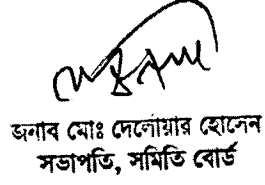 জনাব মোঃ দেলোয়ার হোসেন
সভাপতি, সমিতি বোর্ড